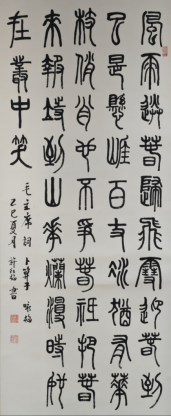 風雨送春歸飛雪迎春到
已是懸崖百丈冰猶有花
枝俏俏也不爭春祇把春
來報待到山花爛漫時她
在叢中笑
毛主席詞 卜算子 咏梅
己巳夏月